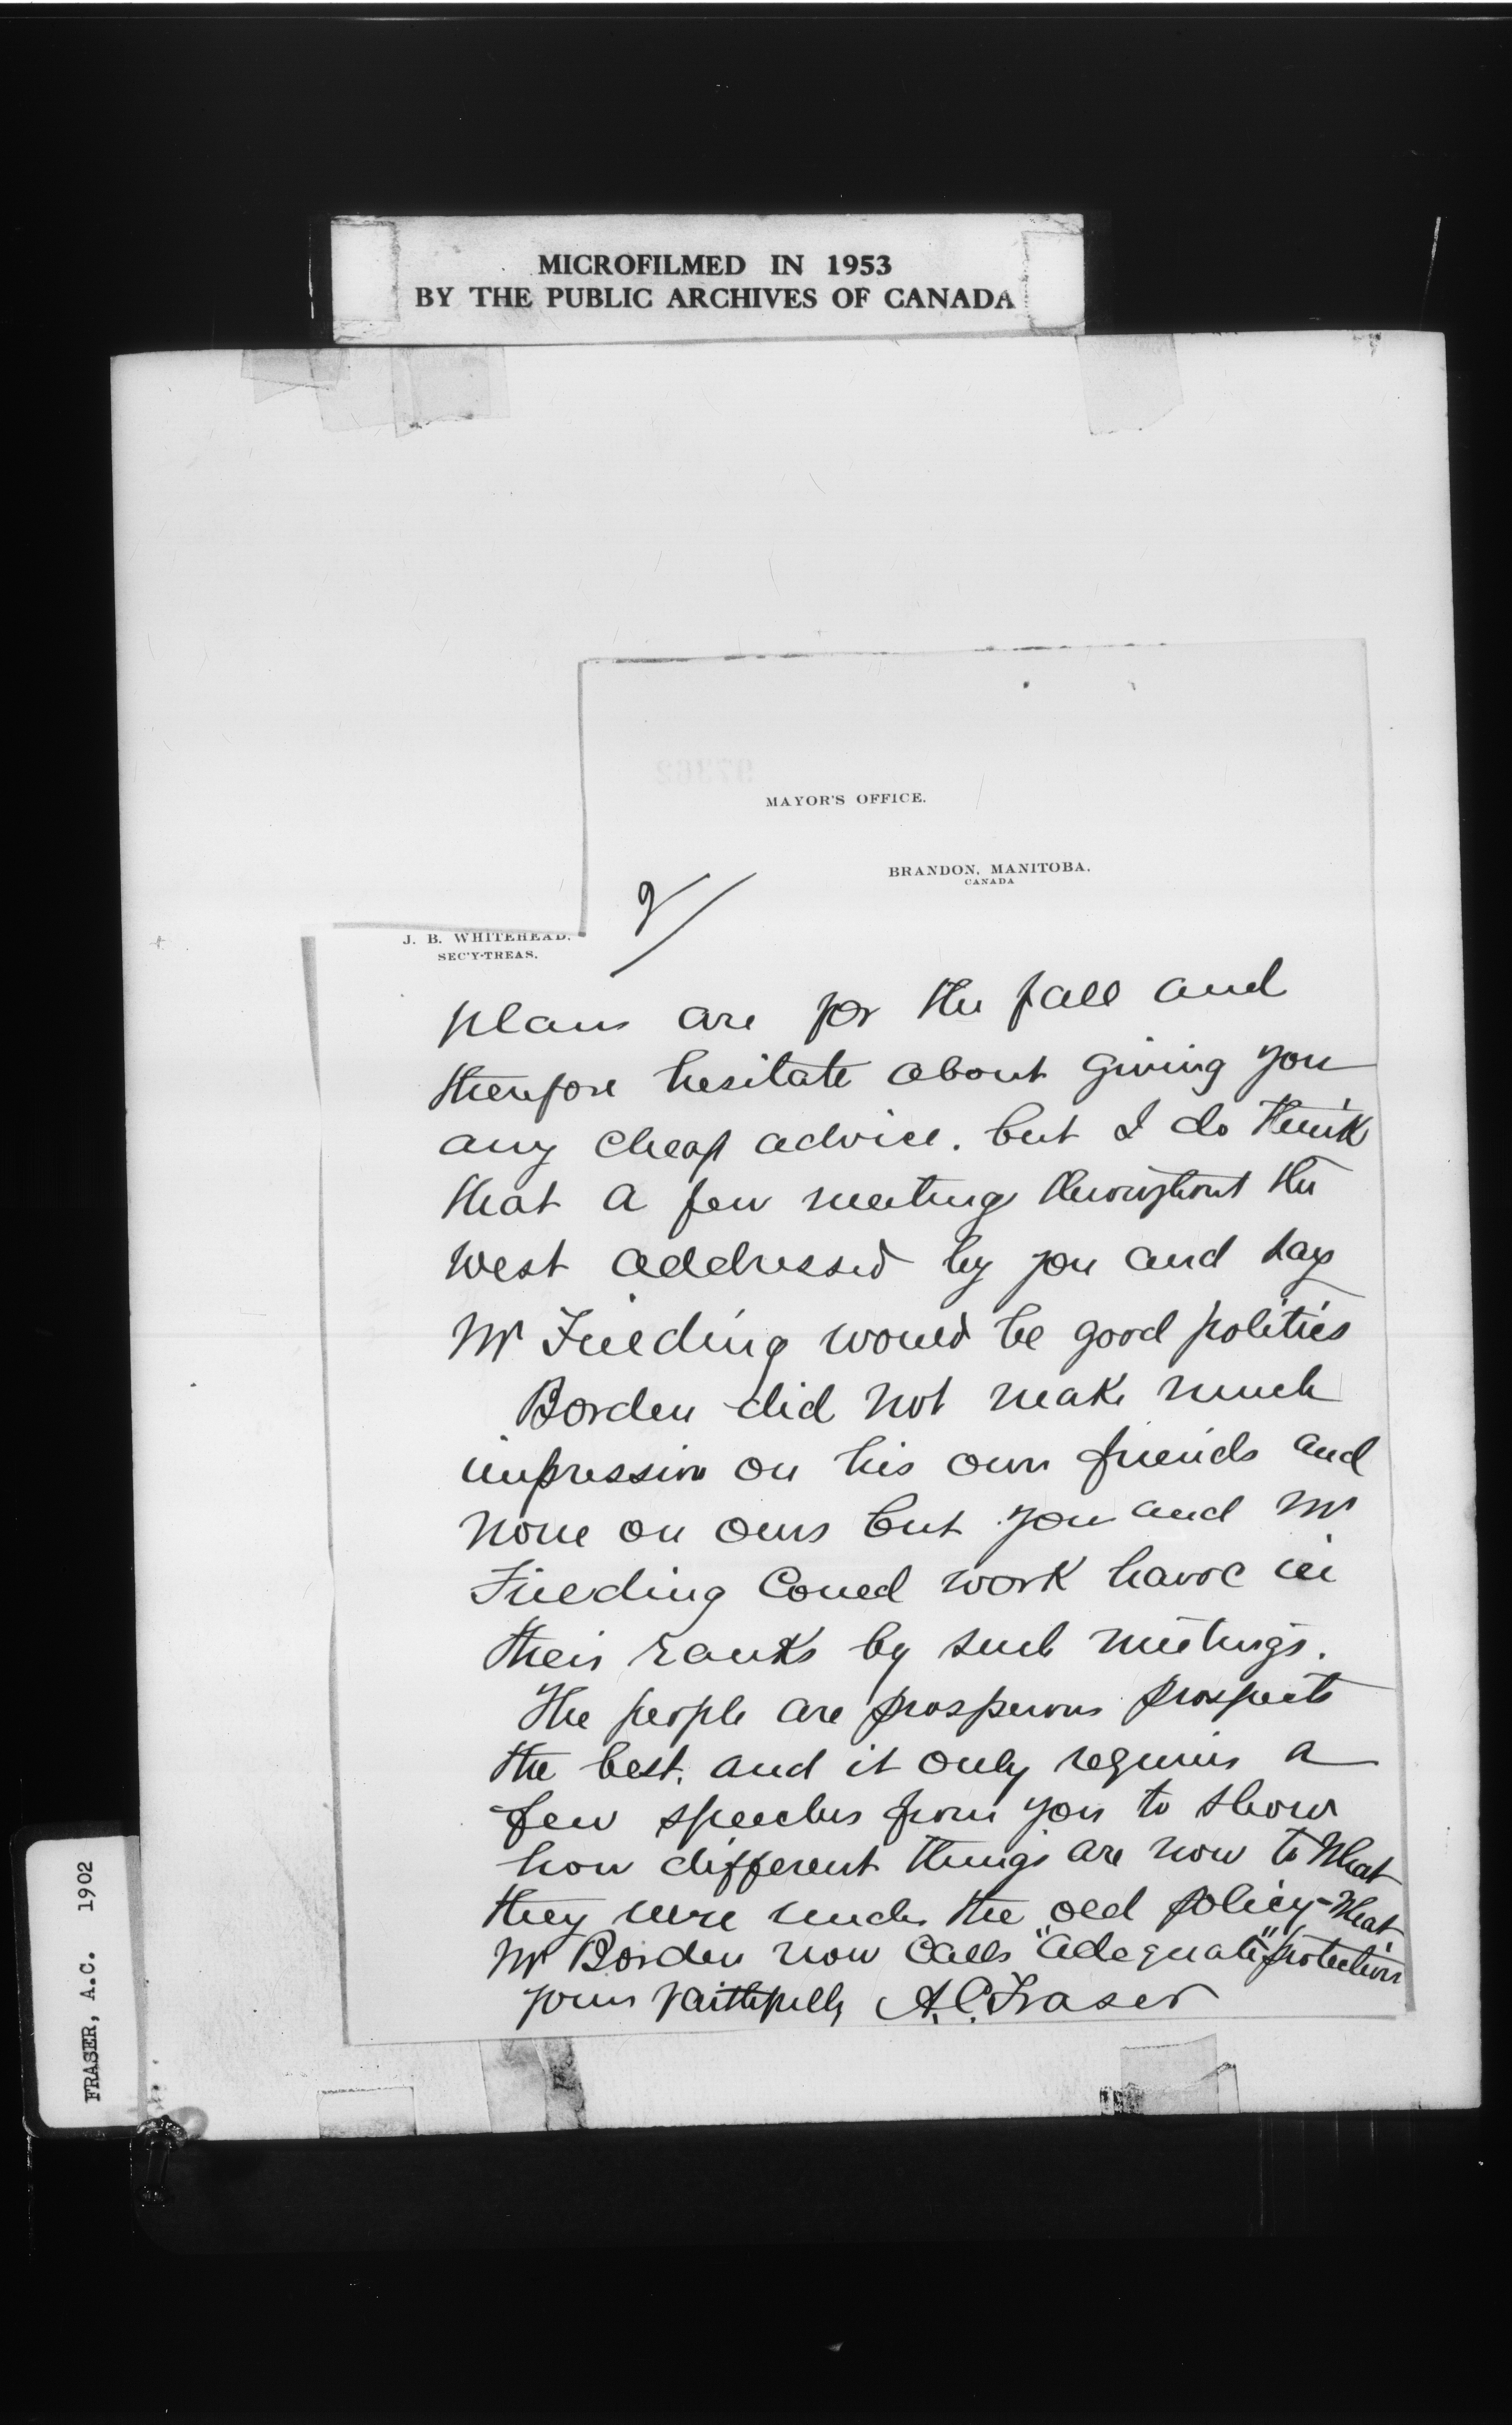 MICROFILMED IN 1953
BY THE PUBLIC ARCHIVES OF CANADA
MAYOR'S OFFICE.
BRANDON, MANITOBA.
CANADA
2/
J. B. WHITEHEAD,
SEC'Y-TREAS.
plans are for the fall and
therefore hesitate about giving you
any cheap advice. but I do think
that a few meetings throughout the
West addressed by you and say
Mr Fielding would be good politics
Borden did not make much
impression on his own friends and
none on ours but you and Mr
Fielding could work havoc in
their ranks by such meetings.
The people are prosperous prospects
the best. and it only requires a
few speeches from you to show
how different things are now to what
they were under the old policy - what
Mr Borden now calls "adequate" protection
Yours faithfully A.C. Fraser
FRASER, A.C. 1902